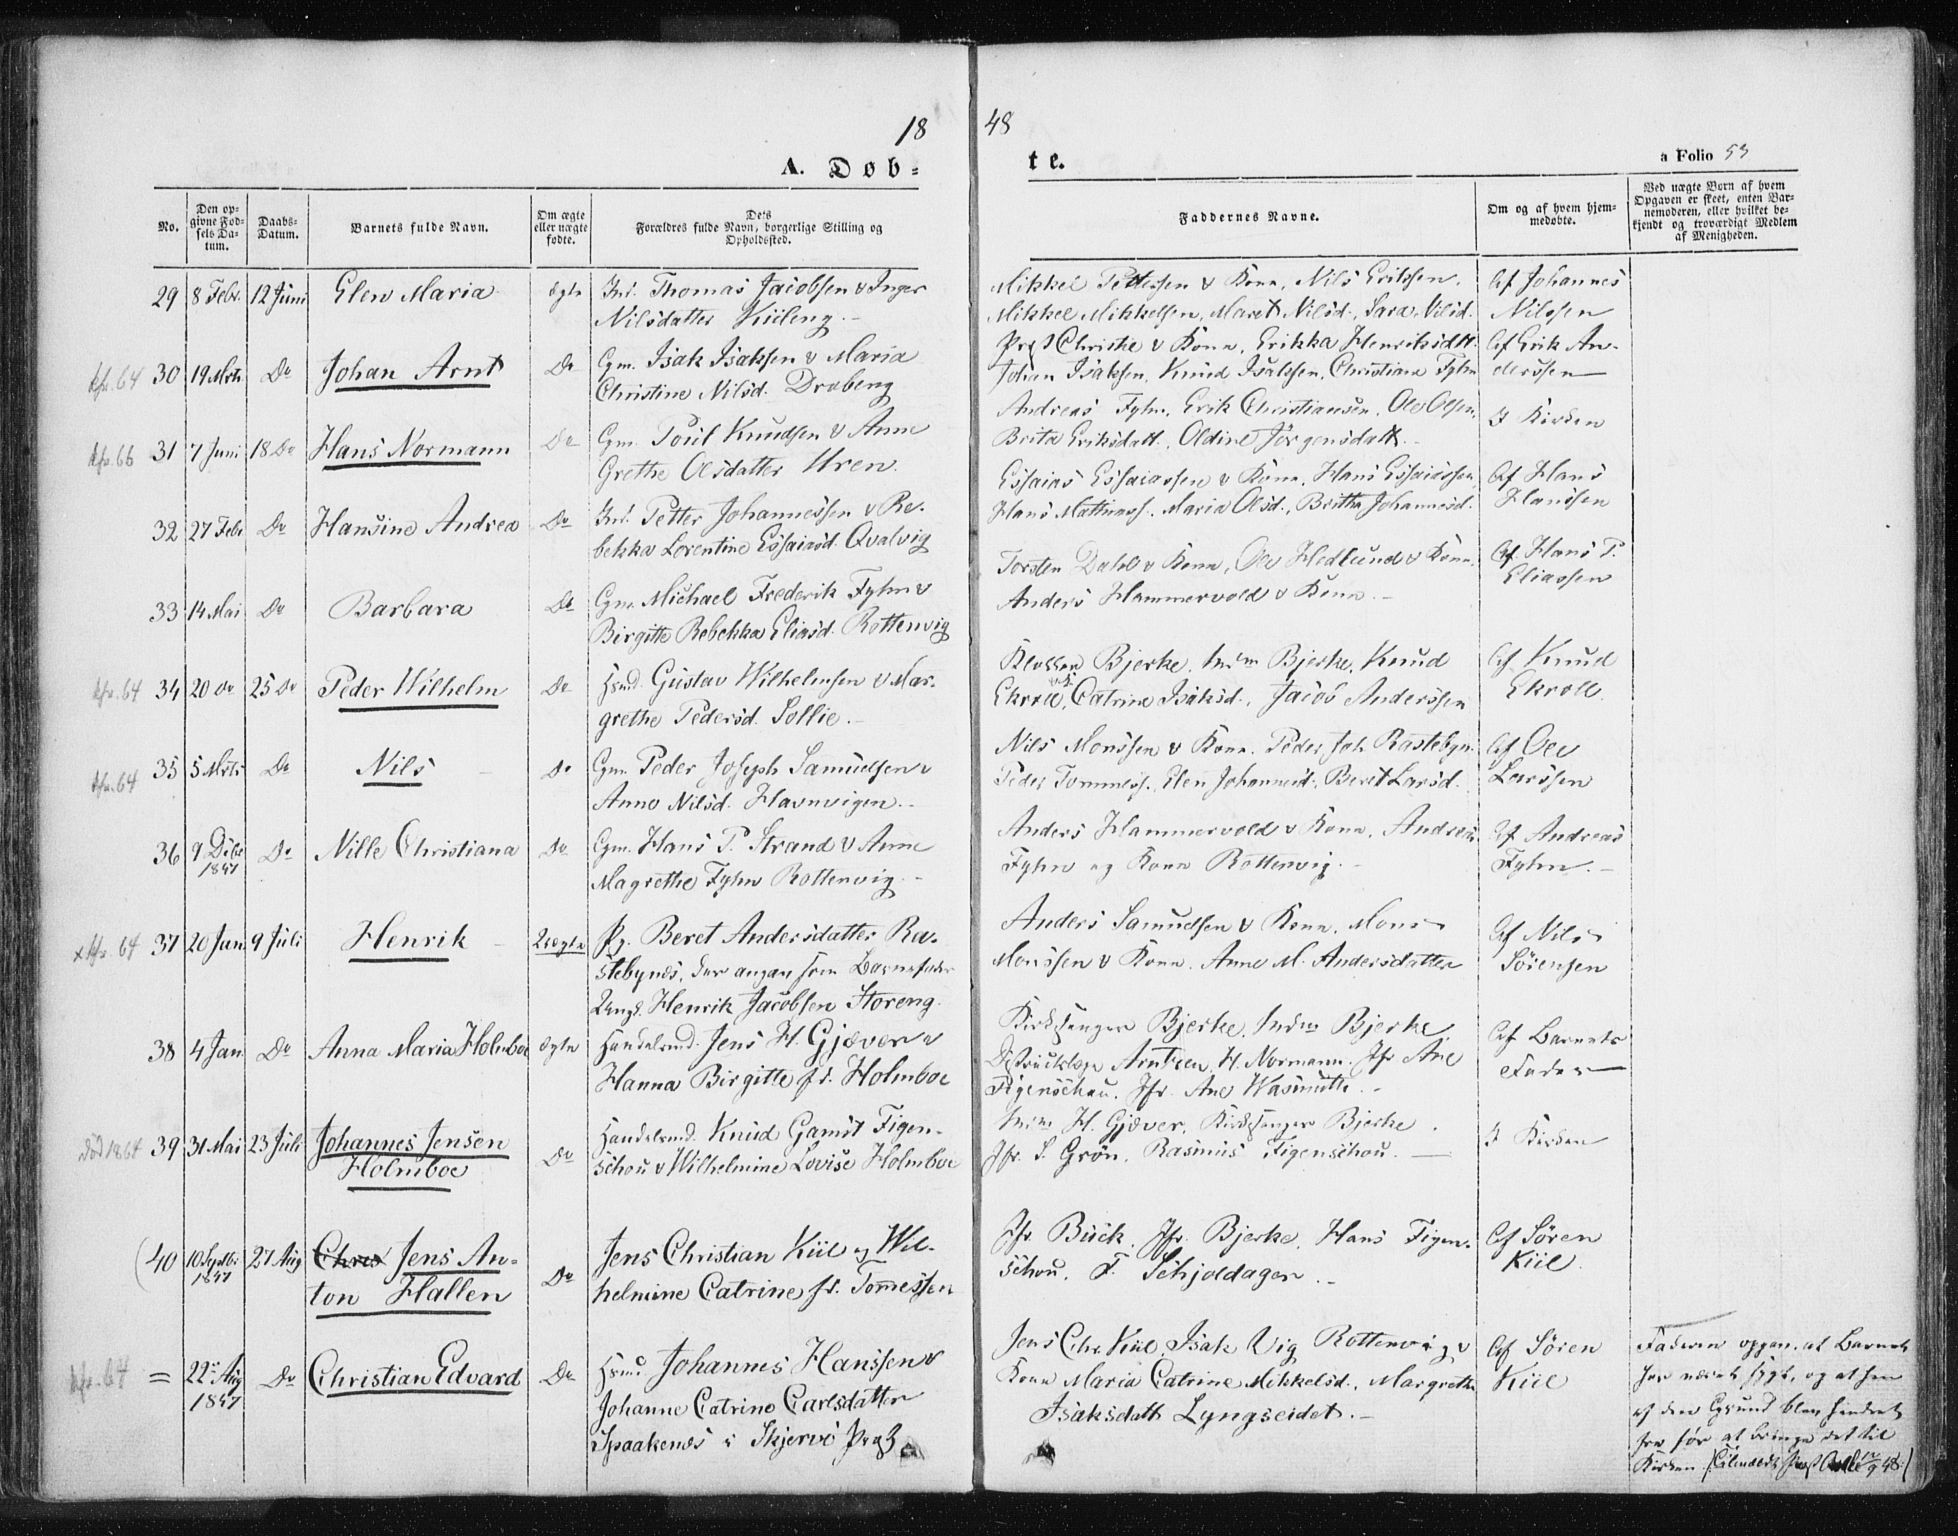 18 48
A. Døb= te.
a Folio 53
No.
Den op-
givne Fød-
sels Da-
tum.
Daabs-
Datum.
Barnets fulde Navn.
Om ægte
eller uægte
fødte.
Dets
Forældres fulde Navn, borgerlige Stilling og
Opholdssted.
Faddernes Navne.
Om og af hvem hjem-
medøbte.
Ved uægte Børn af hvem
Opgaven er skeet, enten Bar-
nemoderen, eller hvilket be-
kjendt og troværdigt Medlem
af Menigheden.
29 8 Febr. 12 Juni Elen Maria ægte Inl. Thomas Jacobsen v Inger
Nilsdatter Kiileng.
Mikkel Pettersen v Kone, Nils Eriksen,
Mikkel Mikkelsen, Maret Nilsd., Sara Nilsd.
Af Johannes
Nilssen
kfr. 64 30 19 Mrts Do Johan Arnt Do Gm. Isak Isaksen v Maria
Christine Nilsd. Drabeng
Christie v Kone, Erikka Henriksdtt.
Johan Isaksen, Knud Isaksen, Christiane Fyhn
Af Erik An-
derssen
kfr. 66 31 7 Juni 18 Do Hans Normann Do Gm. Poul Knudsen v Anne
Grethe Olsdatter Uren.
Andreas Fyhn, Erik Christiansen, Ole Olsen,
Brita Eriksdatt., Oldine Jörgensdatt.
I Kirken
32 27 Febr Do Hansine Andrea Do Inl. Petter Johannessen v Re-
bekka Lorentine Essaiasd. Qvalvig
Essaias Essaiassen v Kone, Hans Essaiassen
Hans Mathiass. Maria Olsd., Britha Johannesd.
Af Hans
Hanssen
33 14 Mai Do Barbara Do Gm. Michael Frederik Fyhn v
Birgitte Rebekka Eliasd. Rottenvig
Torsten Dahl v Kone, Ole Hedlund v Kone,
Anders Hammervold v Kone.
Af Hans P.
Eliassen
kfr. 64 34 20 Do 25 Do Peder Wilhelm Do Hsmd. Gustav Wilhelmsen v Mar-
grethe Pedersd. Sollie.
Klokker Bjerke, Md Bjerke, Knud
Ekroll, Catrine Isaksd., Jacob Anderssen
Af Knud
Ekroll.
kfr. 64 35 5 Mrts Do Nils Do Gm. Peder Joseph Samuelsen v
Anne Nilsd. Havnvigen.
Nils Monssen v Kone. Peder Joh. Rastebyn.
Peder Tommess. Elen Johannesd., Beret Larsd.
Af Ole
Larssen
36 9 Dcbr
1847 Do Nille Christiana Do Gm. Hans P. Strand v Anne
Magrethe Fyhn Rottenvig.
Anders Hammervold v Kone, Andreas
Fyhn og Kone Rottenvig.
Af Andreas
Fyhn.
x kfr. 64 37 20 Jan. 9 Juli Henrik Uægte Pg. Beret Andersdatter Ra-
stebynes, der angav som Barnefader
Ungk. Henrik Jacobsen Storeng.
Anders Samuelsen v Kone. Mons
Monssen v Kone. Anne M. Andersdatter
Af Nils
Sörensen
38 4 Jan. Do Anna Maria Holmboe ægte Handelsmd. Jens H. Gjæver v
Hanna Birgitte f. Holmboe
Kirkesanger Bjerke, Md Bjerke,
Distriktslæge Arntzen, H. Normann. Jfr Ane
Figenschou. Jfr. Ane Wasmuth.
Af Barnets
Fader
död 1864 39 31 Mai 23 Juli Johannes Jensen
Holmboe Do Handelsmd. Knud Gamst Figen-
schou v Wilhelmine Lovise Holmboe
Md H. Gjæver, Kirkesanger Bjerke,
Jfr. S. Grön, Rasmus Figenschou.
I Kirken
(40 10 Septbr
1847 27 Aug Chris Jens An-
ton Hallen Do Jens Christian Kiil og Wil-
helmine Catrine f. Tommessen
Jfr. Buck, Jfr. Bjerke, Hans Figen-
schou, F. Schjeldager.
Af Sören
Kiil.
kfr. 64 = 22 Aug
1847 Do Christian Edvard Do Hsmd. Johannes Hanssen v
Johanne Catrine Carlsdatter
Spaakenæs i Skjervö
Jens Chr. Kiil Isak Vig Rottenvig v
Kone Maria Catrine Mikkelsd., Margrethe
Isaksdatt Lyngseidet.
Af Sören
Kiil
Faderen opgav, at Barnet
har været sygt, og at han
af den Grund blev hindret
fra før at bringe det til
Kirken